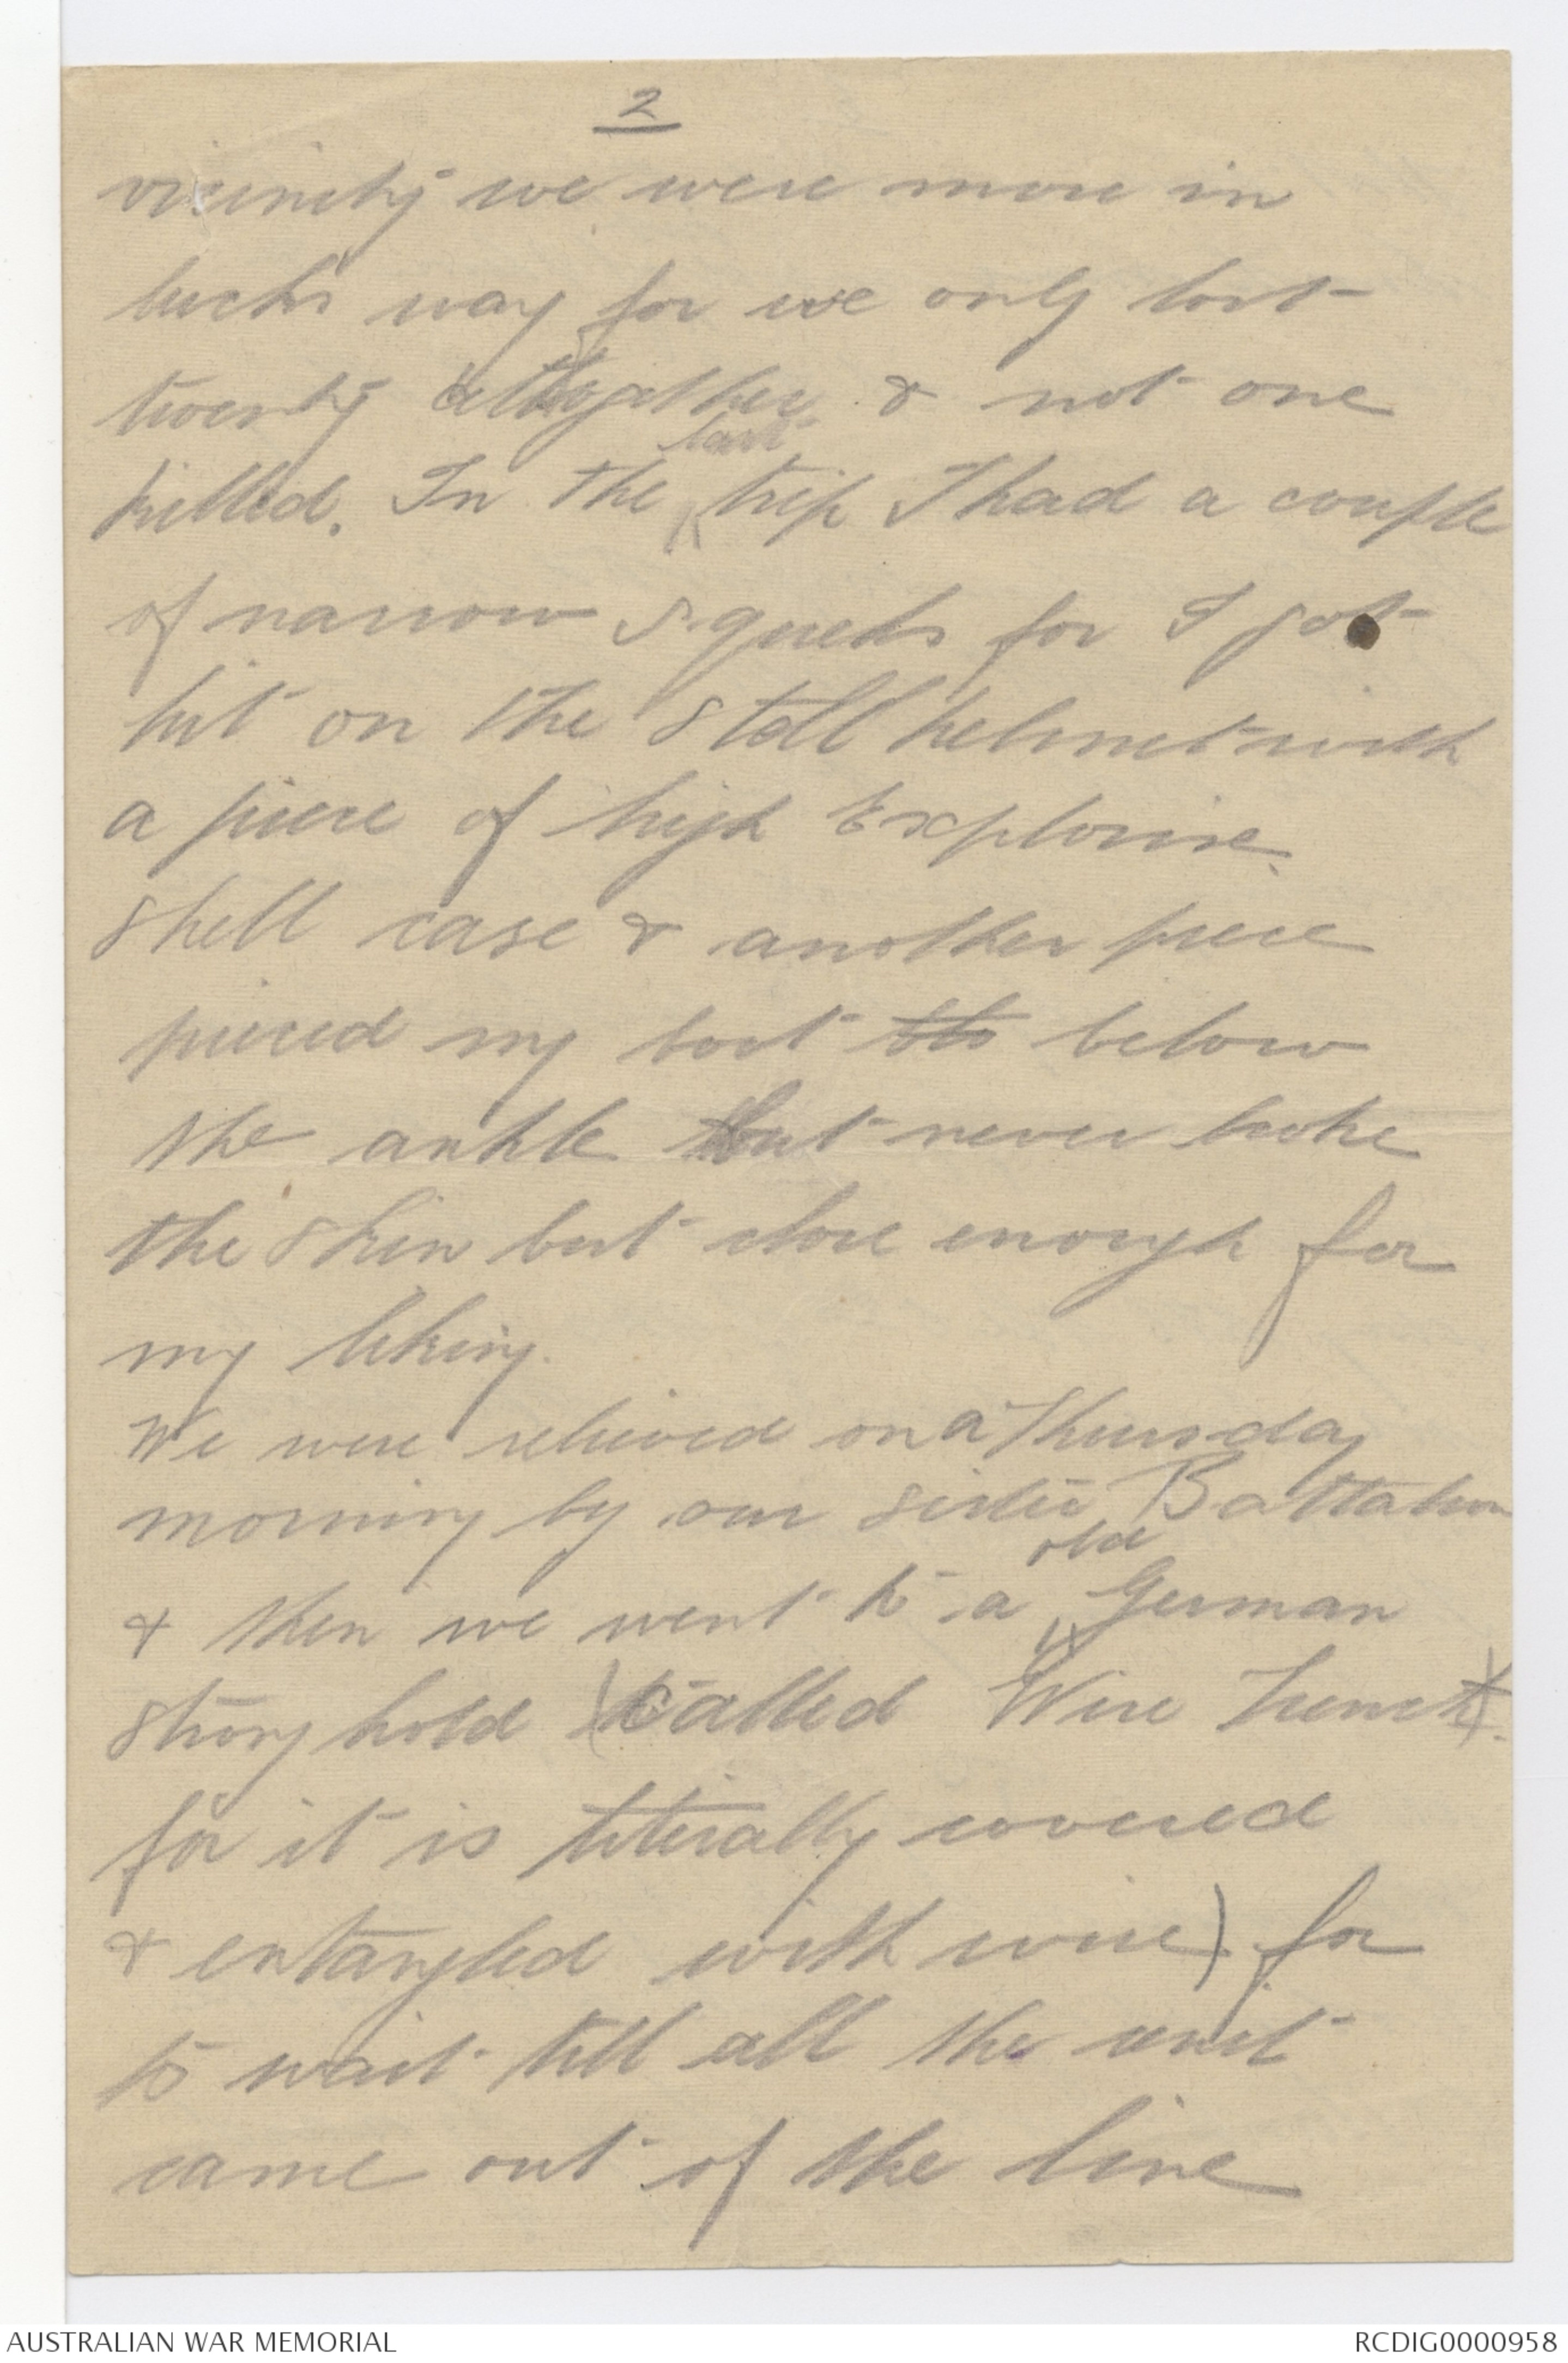 2
vicinity we were more in
lucks way for we only lost
twenty altogether & not one
last
killed. In the trip I had a couple
of narrow squeeks for I got
hit on the stell helmet with
a piece of high Explosive
shell case & another piece
pierced my boot below
the ankle but never broke
the skin but close enough for
my liking.
We were relieved on a Thursday
morning by our sister Battalion
old
& then we went to a German
strong hold (called Wire Trench).
for it is literally covered
& entangled with wire) for
to wait till all the unit
came out of the line
AUSTRALIAN WAR MEMORIAL
RCDIG0000958